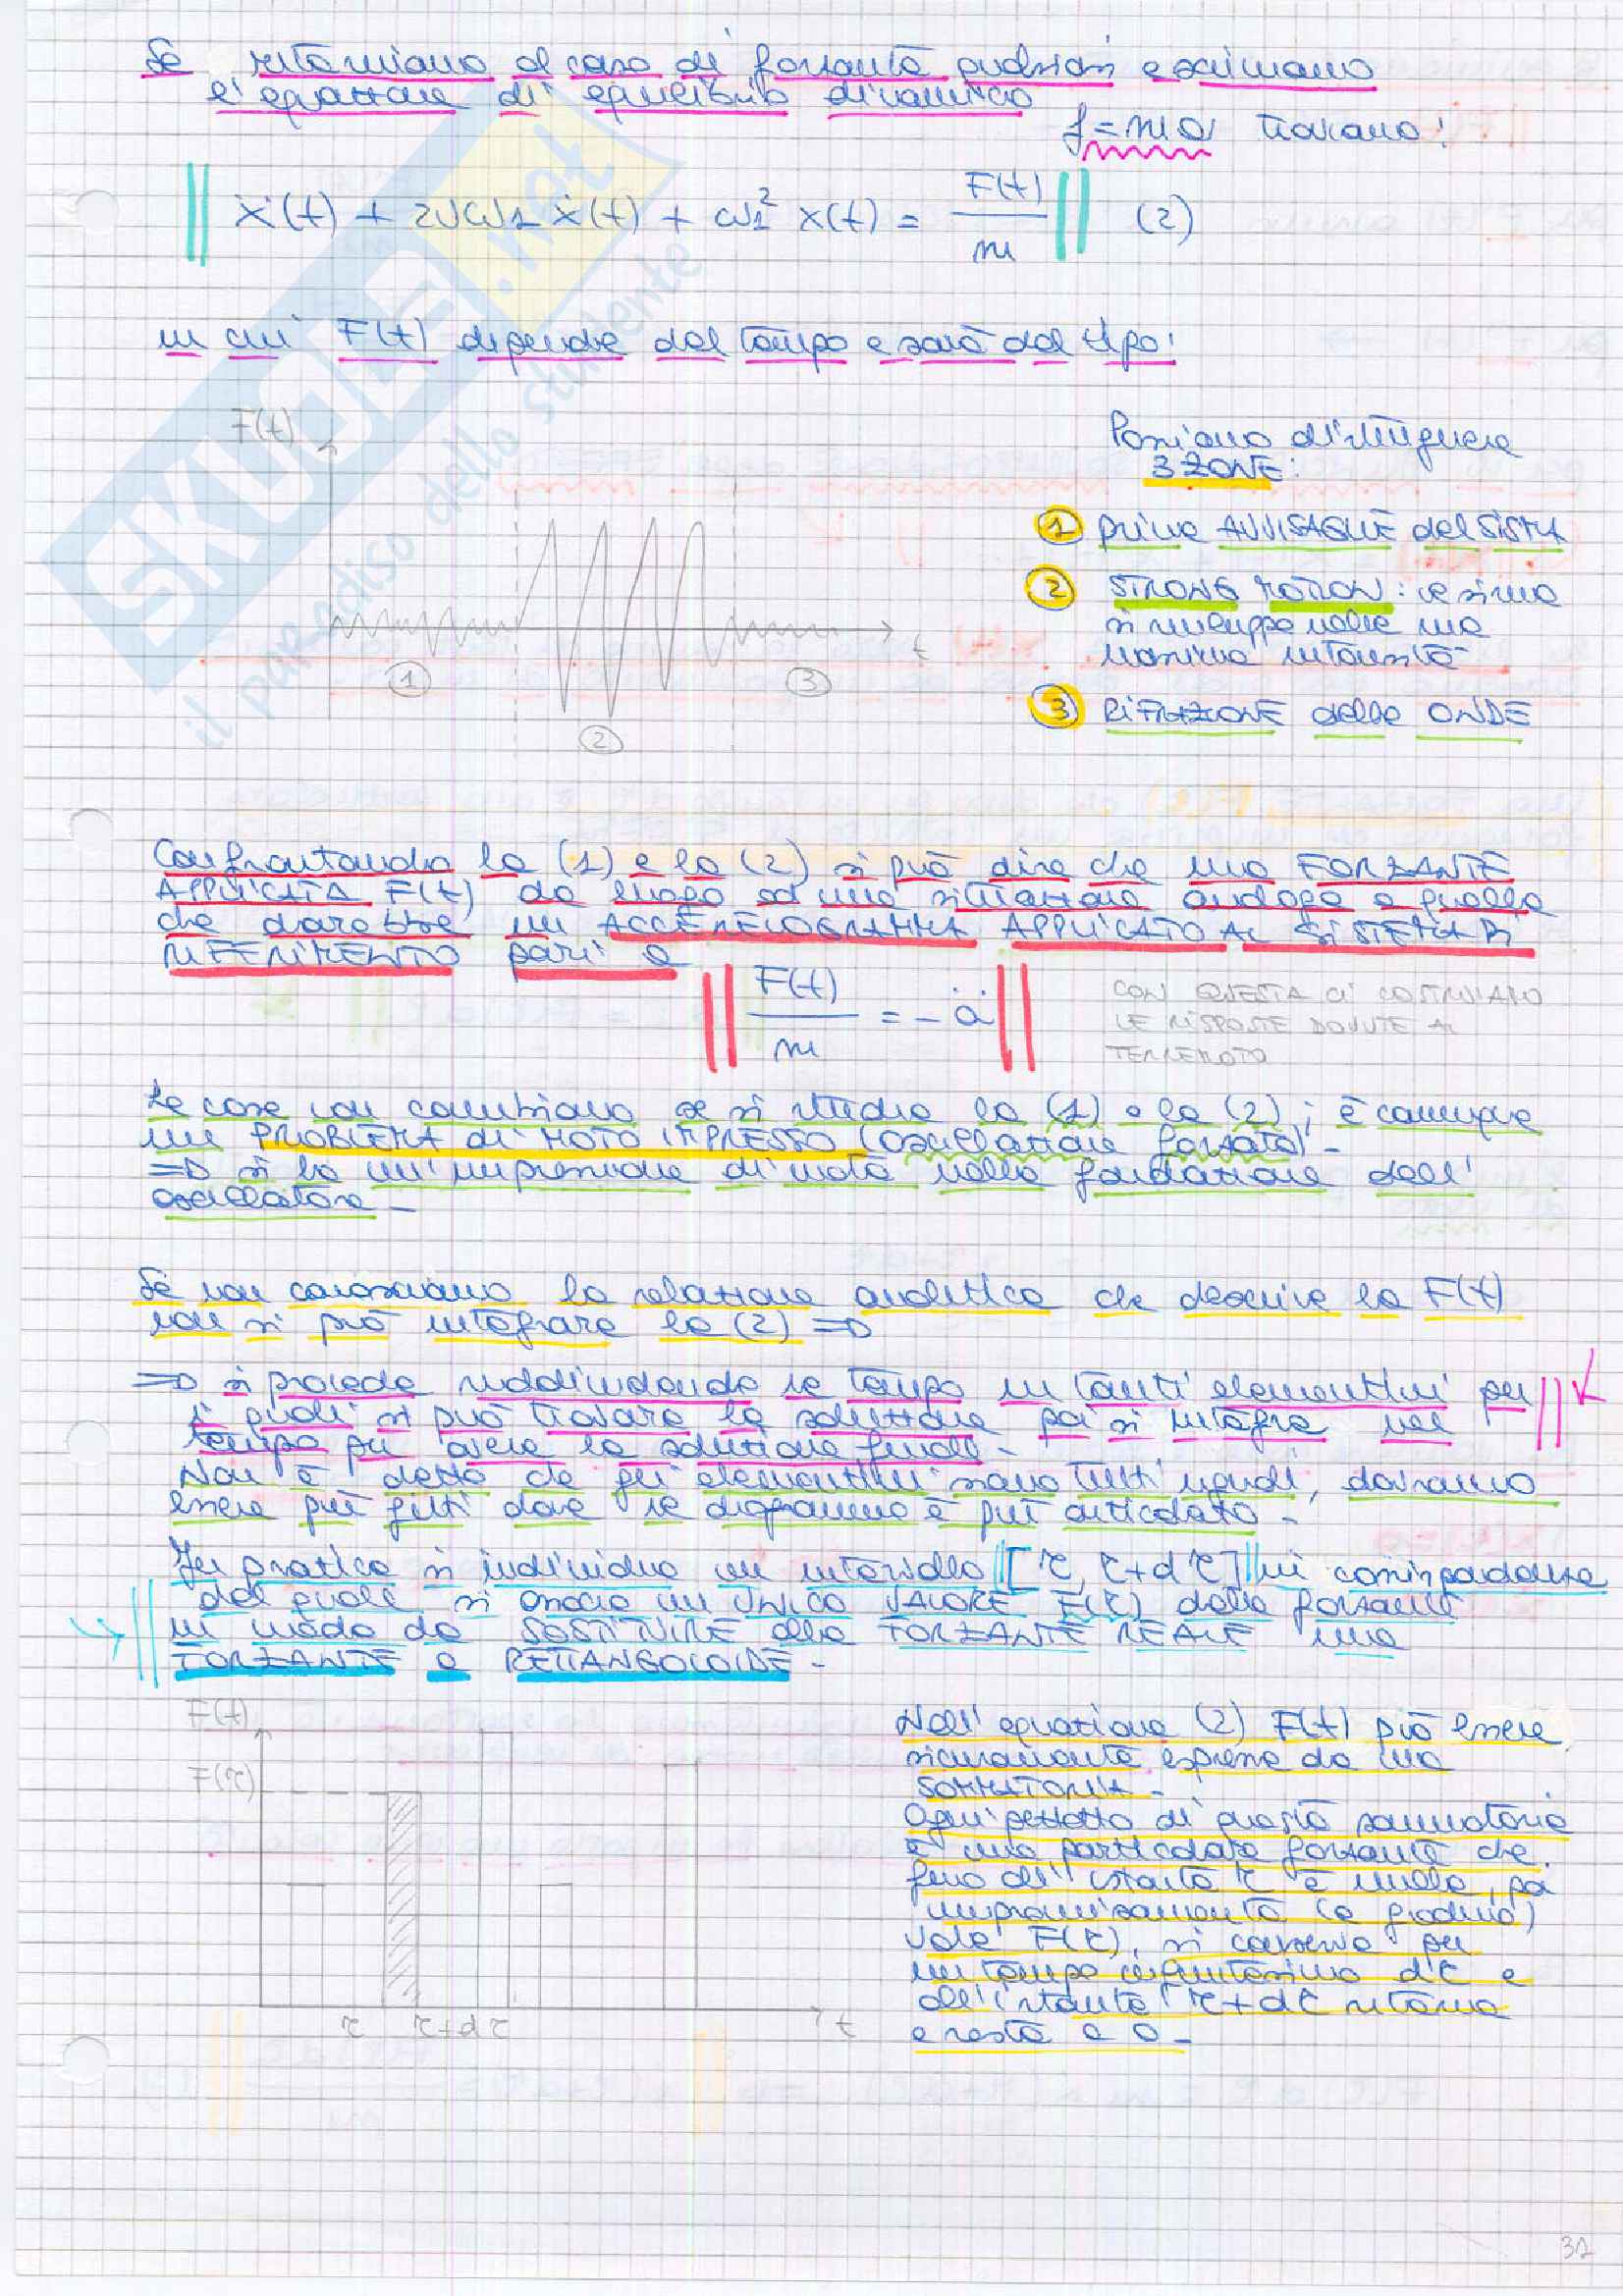 Se ritorniamo al caso di forzante qualsiasi e scriviamo
l'equazione di equilibrio dinamico
f = m a troviamo:
ẍ(t) + 2νω₁ ẋ(t) + ω₁² x(t) = F(t)/m (2)
in cui F(t) dipende dal tempo e sarà del tipo:
F(t)
t
1
2
3
Possiamo distinguere
3 ZONE:
1 prime AVVISAGLIE del SISMA
2 STRONG MOTION: il sisma
si sviluppa nella sua
massima intensità
3 RIFRAZIONE delle ONDE
Confrontando la (1) e la (2) si può dire che una FORZANTE
APPLICATA F(t) dà luogo ad una situazione analoga a quella
che darebbe un ACCELEROGRAMMA APPLICATO AL SISTEMA DI
RIFERIMENTO pari a
F(t)/m = - ä
CON QUESTA CI COSTRUIAMO
LE RISPOSTE DOVUTE AL
TERREMOTO
Le cose non cambiano se si studia la (1) o la (2); è comunque
un PROBLEMA di MOTO IMPRESSO (oscillazione forzata) -
⇒ si ha un'impressione di moto nella fondazione dell'
oscillatore -
Se non conosciamo la relazione analitica che descrive la F(t)
non si può integrare la (2) ⇒
⇒ si procede suddividendo il tempo in tanti elementini per
i quali si può trovare la soluzione poi si integra nel
tempo per avere la soluzione finale -
Non è detto che gli elementini siano tutti uguali, dovranno
essere più fitti dove il diagramma è più articolato -
In pratica si individua un intervallo [τ, τ+dτ] in corrispondenza
del quale si associa un UNICO VALORE F(τ) della forzante
in modo da SOSTITUIRE alla FORZANTE REALE una
FORZANTE a RETTANGOLOIDE -
F(t)
F(τ)
τ τ+dτ t
Nell'equazione (2) F(t) può essere
sicuramente espressa da una
SOMMATORIA -
Ogni pezzetto di questa sommatoria
è una particolare forzante che
fino all'istante τ è nulla, poi
improvvisamente (a gradino)
vale F(τ), si conserva per
un tempo infinitesimo dτ e
all'istante τ+dτ ritorna
e resta a 0 -
32
SKUOLA.net
il paradiso dello studente